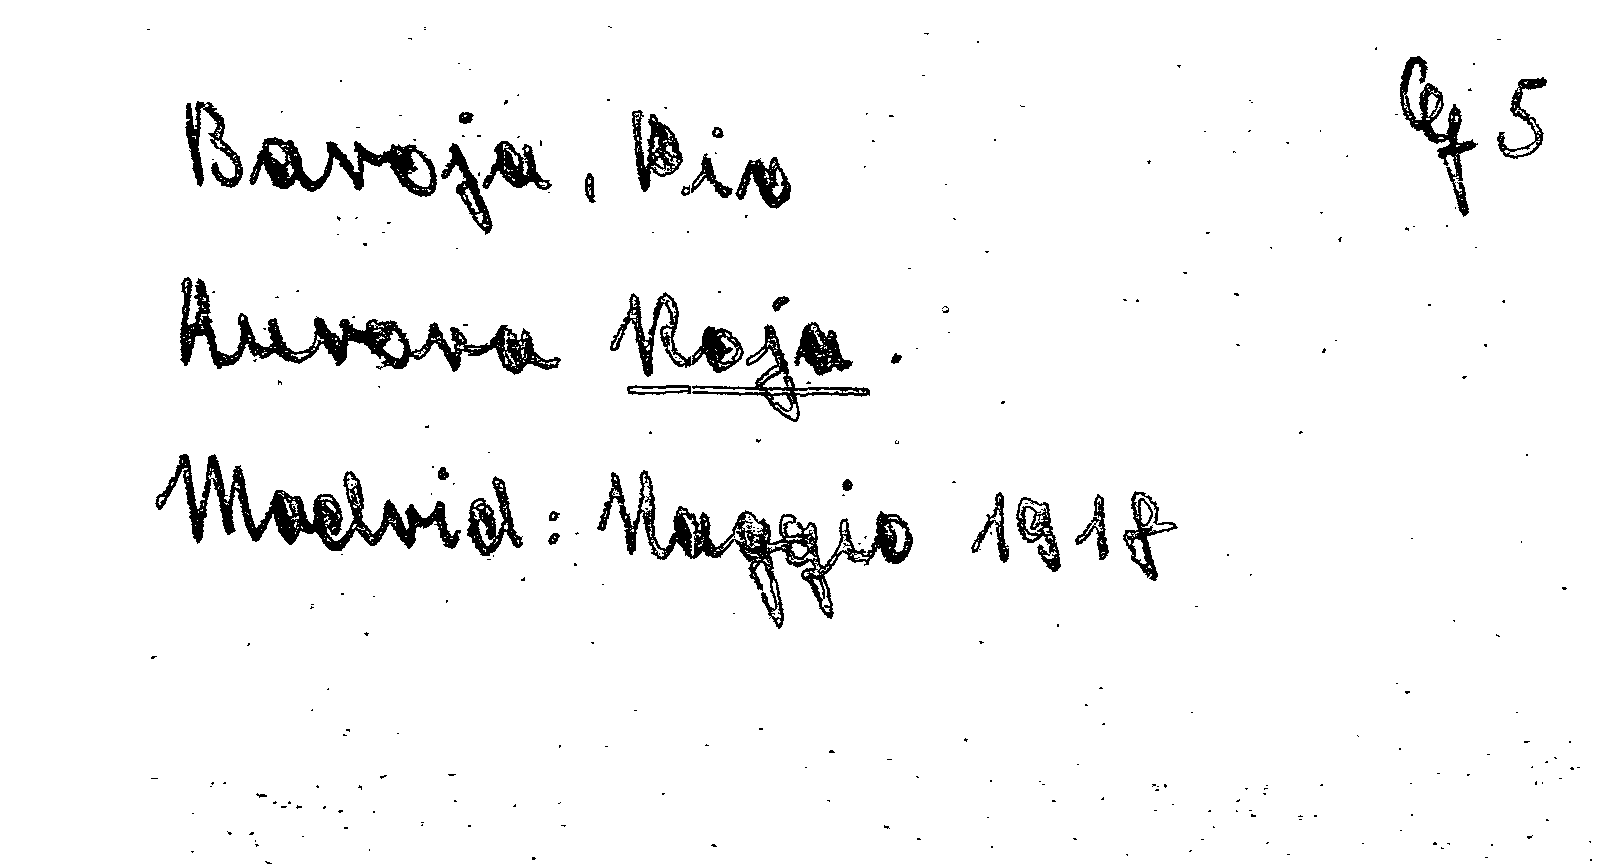 Baroja, Pio
Aurora Roja.
Madrid: Maggio 1918
5